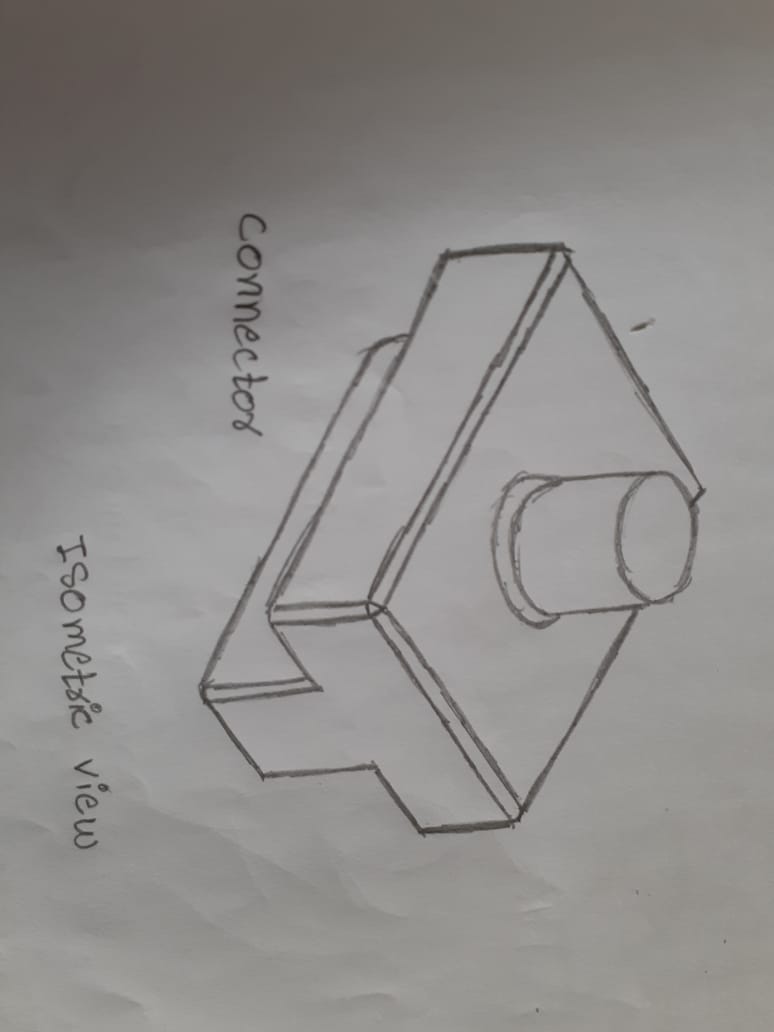 Connector
Isometric view